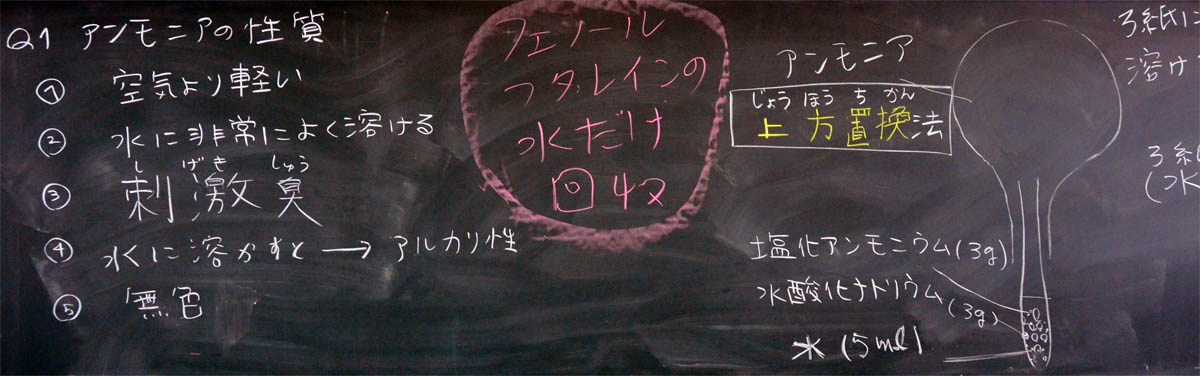 Q1 アンモニアの性質
① 空気より軽い
② 水に非常によく溶ける
しげきしゅう
③ 刺激臭
④ 水に溶かすと→アルカリ性
⑤ 無色
フェノール
フタレインの
水だけ
回収
アンモニア
じょうほうちかん
上方置換法
塩化アンモニウム(3g)
水酸化ナトリウム(3g)
水(5ml)
ろ紙に
溶け
ろ紙
(水